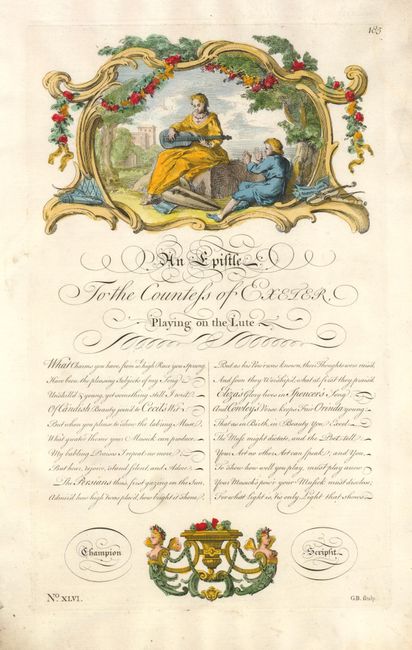 185
An Epistle
To the Countess of EXETER,
Playing on the Lute
What Charms you have, from what high Race you Sprung
Have been the pleasing Subjects of my Song
Unskill'd & young, yet something still I writ
Of Ca'ndish Beauty join'd to Cecil's Wit
But when you please to show the lab'ring Muse,
What greater Theme your Musick can produce,
My babling Praises I repeat no more
But hear, rejoice, stand silent, and Adore.
The Persians thus, first gazing on the Sun,
Admir'd how high 'twas plac'd, how bright it shone,
But as his Pow'r was known, their Thoughts were rais'd
And soon they Worship'd, what at first they prais'd
Eliza's Glory lives in Spencer's Song
And Cowley's Verse keeps Fair Orinda young
That as in Birth, in Beauty You Excel
The Muse might dictate, and the Poet tell
Your Art no other Art can Speak, and You
To show how well you play, must play anew
Your Musick's pow'r your Musick must disclose,
For what Light is, 'tis only Light that shows.
Champion
Scripsit.
No. XLVI.
G.B. sculp.